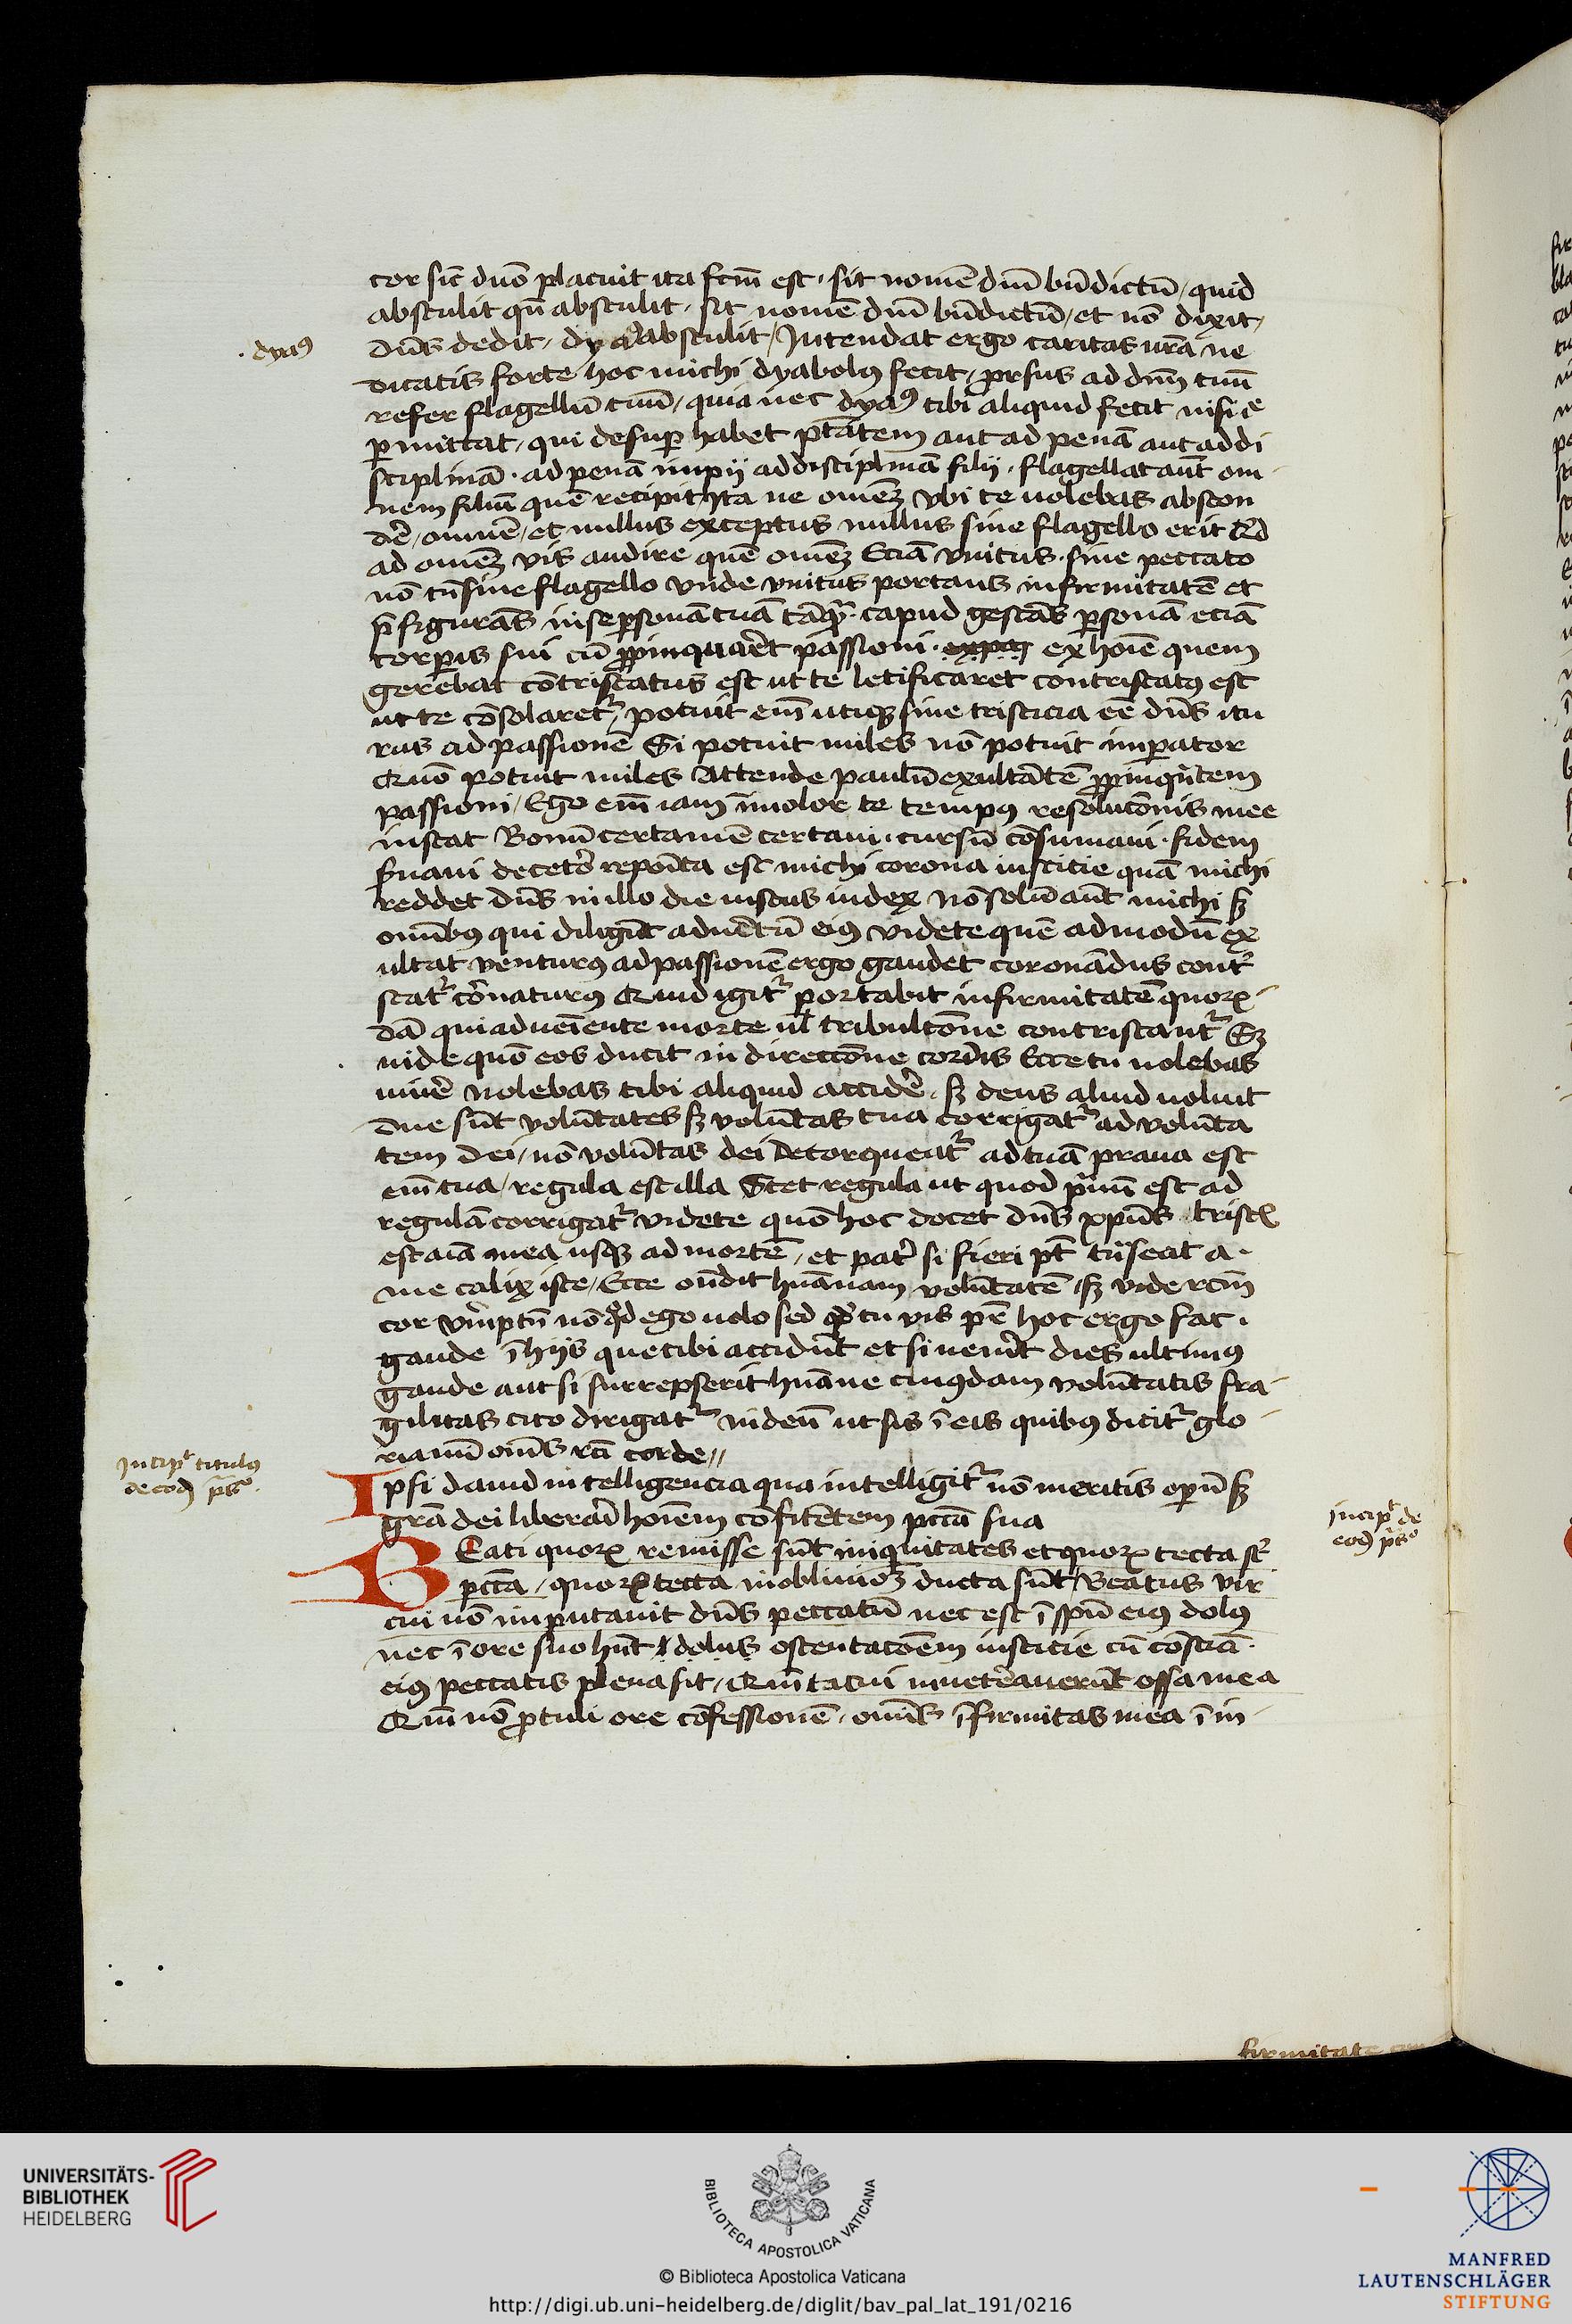 cor sic̄ dn̄o placuit ita fc̄m est · sit nomē dn̄i bn̄dictū / quid
abstulit qn̄ abstulit · sit nomē dn̄i bn̄dictū / et nō dixit /
· dyaꝯ
dn̄s dedit / dyaꝯ abstulit / Intendat ergo caritas vr̄a ne
dicatis forte hoc michi dyabolꝯ fecit / ꝓrsus ad dn̄m tuū
refer flagellū tuū / quia nec dyaꝯ tibi aliquid fecit nisi
ꝑmittat / qui desuꝑ habet ptātem aut ad penā aut ad di
sciplinā · ad penā impij ad disciplinā filij · flagellat aūt om
nem filiū quē recipit Ita ne om̄eʒ vbi te uolebas abscon
dē / omnē / et nullus exceptus nullus sine flagello erit
ad om̄eʒ vis audire quē om̄eʒ Eciā vnicus · sine peccato
nō tn̄ sine flagello vnde vnicus portans infirmitatē et
p̄figurās in se ꝑsonā tuā tāqͣ · capud gestās ꝑsonā eciā
corꝑis sui cū ꝓpinquaret passioni · ex hoīe quem
gerebat cōtristatus est ut te letificaret contristatꝯ est
ut te cōsolaret᷑ / potuit em̄ utiqʒ sine tristicia eē dn̄s itu
rus ad passionē Si potuit miles nō potuit imꝑator
Quō potuit miles Attende paulū exultātē ꝓpinqͣntem
passioni / Ego em̄ iam īmolor te tempꝯ resolucōnis mee
instat Bonū certamē certaui · cursū cōsumaui · fidem
ẜuaui decet̄o repoīta est michi corona iusticie quā michi
reddet dn̄s in illo die iustus iudex Nō solū aūt michi sʒ
om̄ibꝯ qui diligūt aduētū eiꝯ videte quē admodū ex
ultat venturꝯ ad passionē ergo gaudet coronādus cont͛
stat᷑ cōrnaturꝯ Quid igit᷑ portabit infirmitatē quorꝝ
dā qui adueiente morte ul̄ tribultōne contristant᷑ Sʒ
uide quō eos ducit in direccōne cordis Ecce tu uolebas
uiuē nolebas tibi aliquid accidē · sʒ deus aliud uoluit
due sūt volūtates sʒ volūtas tua corrigat᷑ ad volūta
tem dei / nō volūtas dei detorqueat᷑ ad tuā praua est
em̄ tua / regula est illa Stet regula ut quod pͣuū est ad
regulā corrigat᷑ videte quō hoc docet dn̄s xp̄us tristꝭ
est aīa mea usqʒ ad mortē / et pat̄ si fieri pt̄ tn̄seat a ·
me calix iste / Ecce on̄dit hūanam volūtatē sʒ vide rc̄m
cor Vͬmptn̄ nō qͦd ego uolo sed qͦd tu vis pr̄ hoc ergo fac ·
gaude ī hijs que tibi accidūt et si uenīt dies ultimꝯ
gaude aut si surrepserit hūane cuiꝯdam volūtatis fra
gilitas cito dirigat᷑ in deū ut sis ī eis quibꝯ dicit᷑ glo
riamī om̄s rc̄i corde //
Incip͛t titulꝯ
de eodꝫ ps̄ ·
Ipsi dauid intelligencia qua intelligit᷑ nō meritis oꝑū sʒ
grā dei liberari hoīem cōfitētem pcc̄a sua
Incip͛t de
eodꝫ ps̄o
BEati quorꝝ remisse sūt iniquitates et quorꝝ tecta st̄
pcc̄a / quorꝝ tecta in obliuioʒ ducta sūt Beatus vir
cui nō imputauit dn̄s peccatū nec est ī spū eiꝯ dolꝯ
nec ī ore suo hn̄t dolus ostentacōem iusticie cū cōsciā ·
eiꝯ peccatis plena sit / Qm̄ tacui inuet̄auerūt ossa mea
Qm̄ nō ꝓtuli ore cōfessionē / om̄s īfirmitas mea ī in
firmitate
UNIVERSITÄTS-
BIBLIOTHEK
HEIDELBERG
BIBLIOTECA APOSTOLICA VATICANA
© Biblioteca Apostolica Vaticana
http://digi.ub.uni-heidelberg.de/diglit/bav_pal_lat_191/0216
MANFRED
LAUTENSCHLÄGER
STIFTUNG